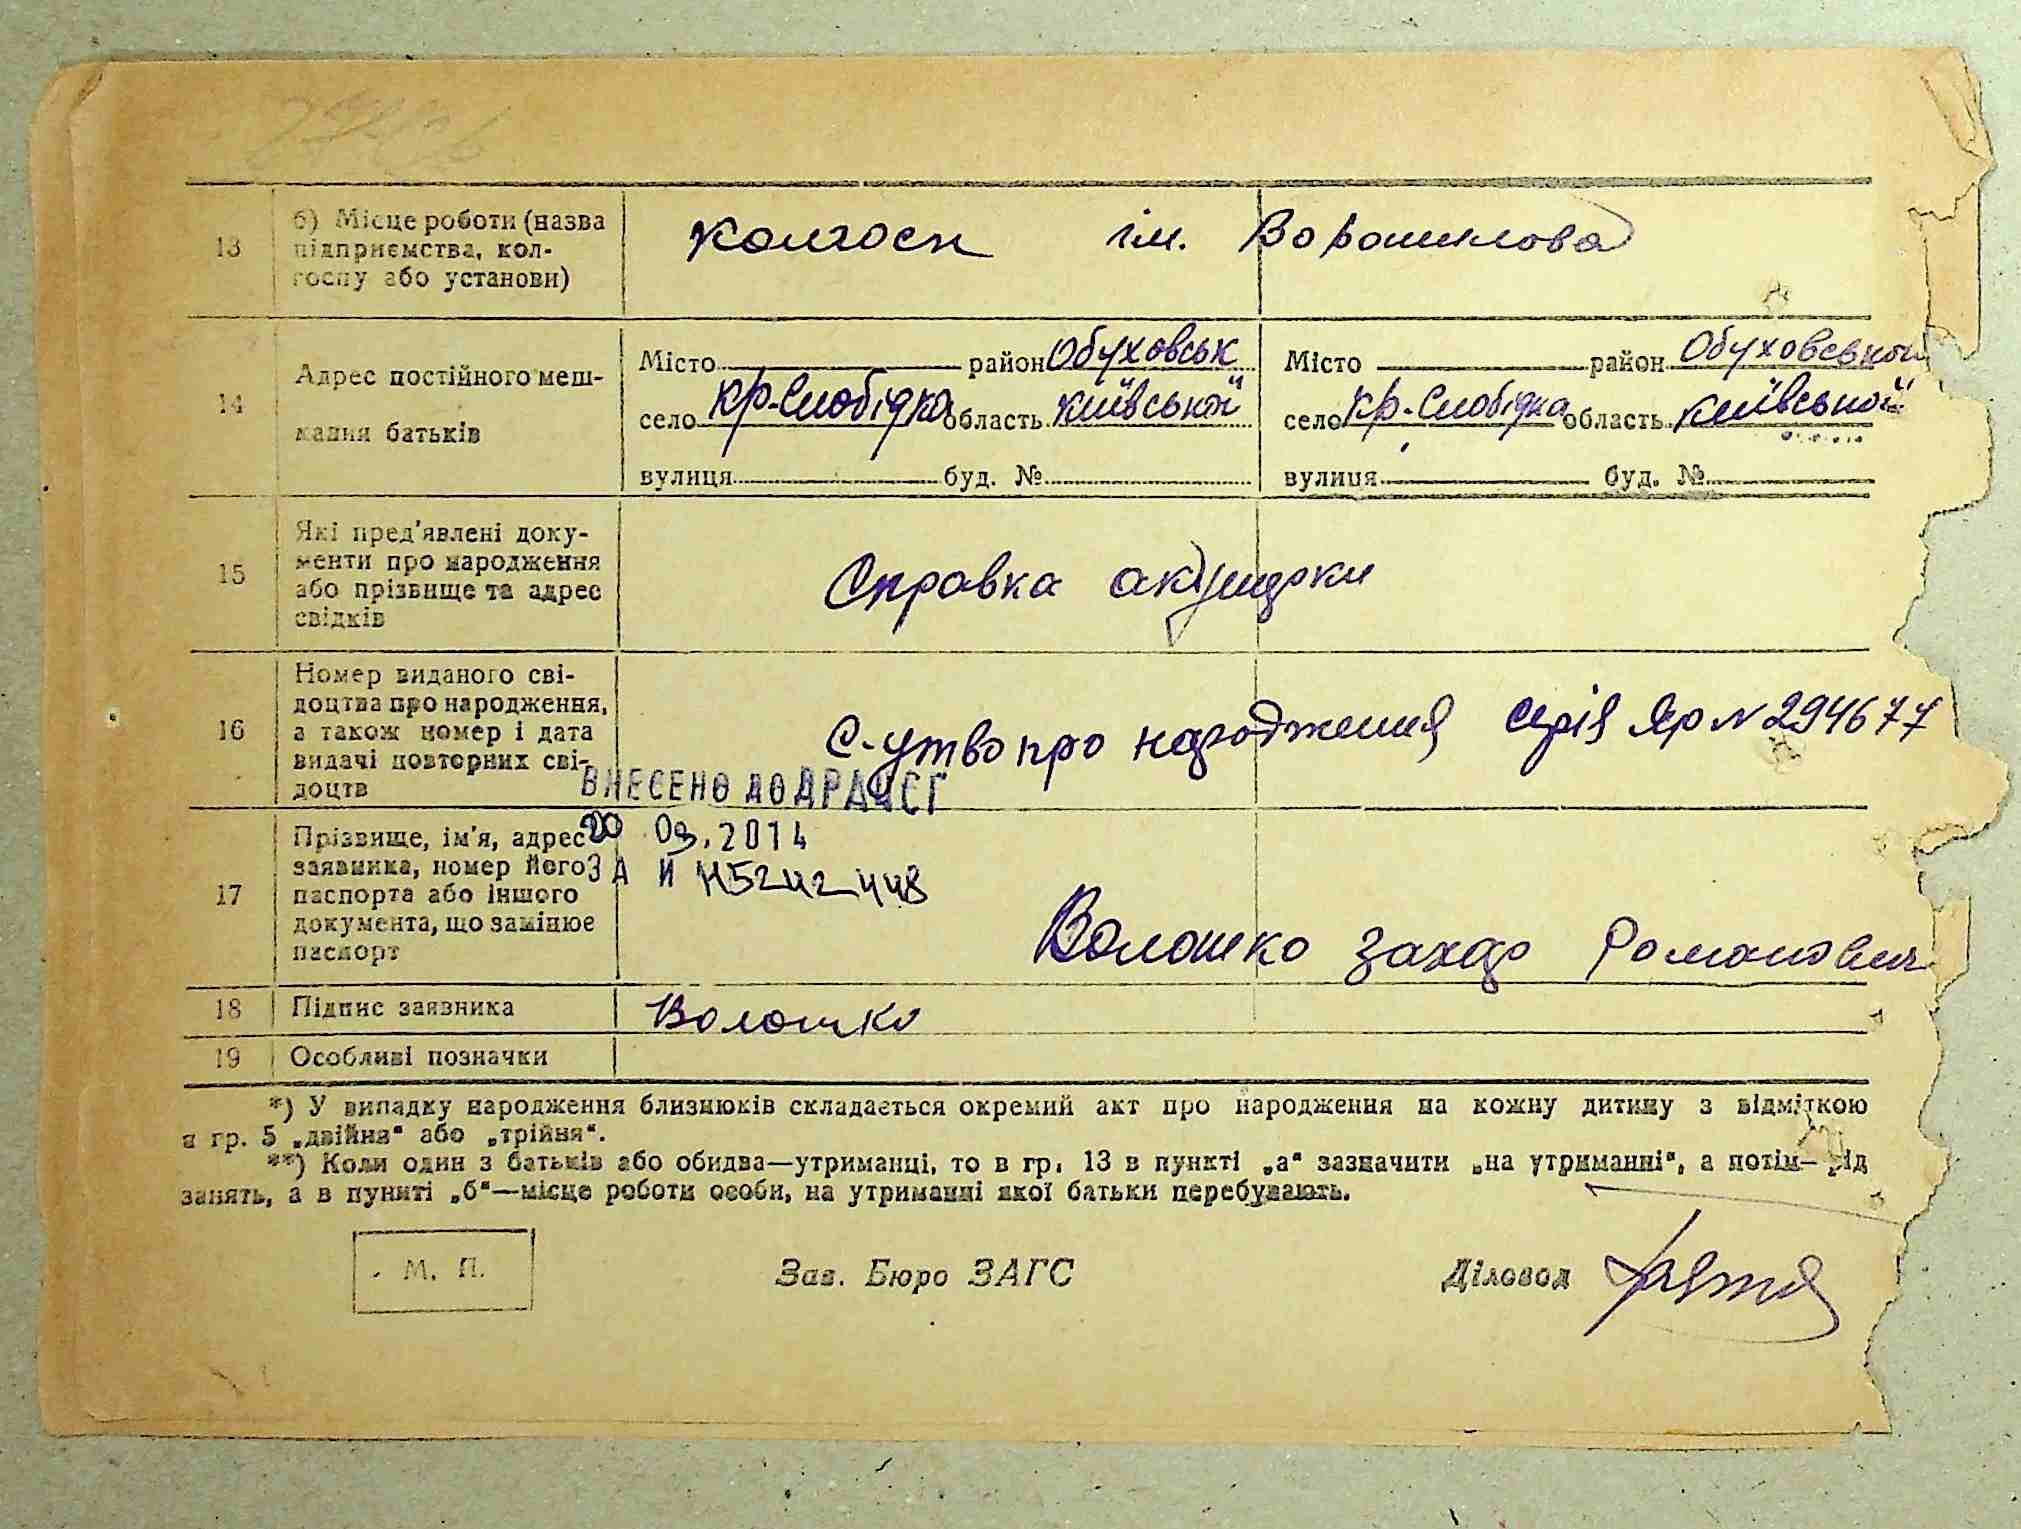 13
б) Місце роботи (назва
підприємства, кол-
госпу або установи)
Колгосп ім. Ворошилова
14
Адрес постійного меш-
кання батьків
Місто район Обуховськ
село Кр-Слобідка область Київської
вулиця буд. №
Місто район Обуховської
село Кр. Слобідка область Київської
вулиця буд. №
15
Які пред'явлені доку-
менти про народження
або прізвище та адрес
свідків
Справка акушерки
16
Номер виданого сві-
доцтва про народження,
а також номер і дата
видачі повторних сві-
доцтв
С-утво про народження серія Яр N 294677
ВНЕСЕНО ДО ДРАЦСГ
20 09.2014
ЗА И N5242448
17
Прізвище, ім'я, адрес
заявника, номер його
паспорта або іншого
документа, що замінює
паспорт
Волошко Захар Романович
18
Підпис заявника
Волошко
19
Особливі позначки
*) У випадку народження близнюків складається окремий акт про народження на кожну дитину з відміткою
в гр. 5 „двійня“ або „трійня“.
**) Коли один з батьків або обидва—утриманці, то в гр. 13 в пункті „а“ зазначити „на утриманні“, а потім—рід
занять, а в пункті „б“—місце роботи особи, на утриманні якої батьки перебувають.
М. П.
Зав. Бюро ЗАГС
Діловод